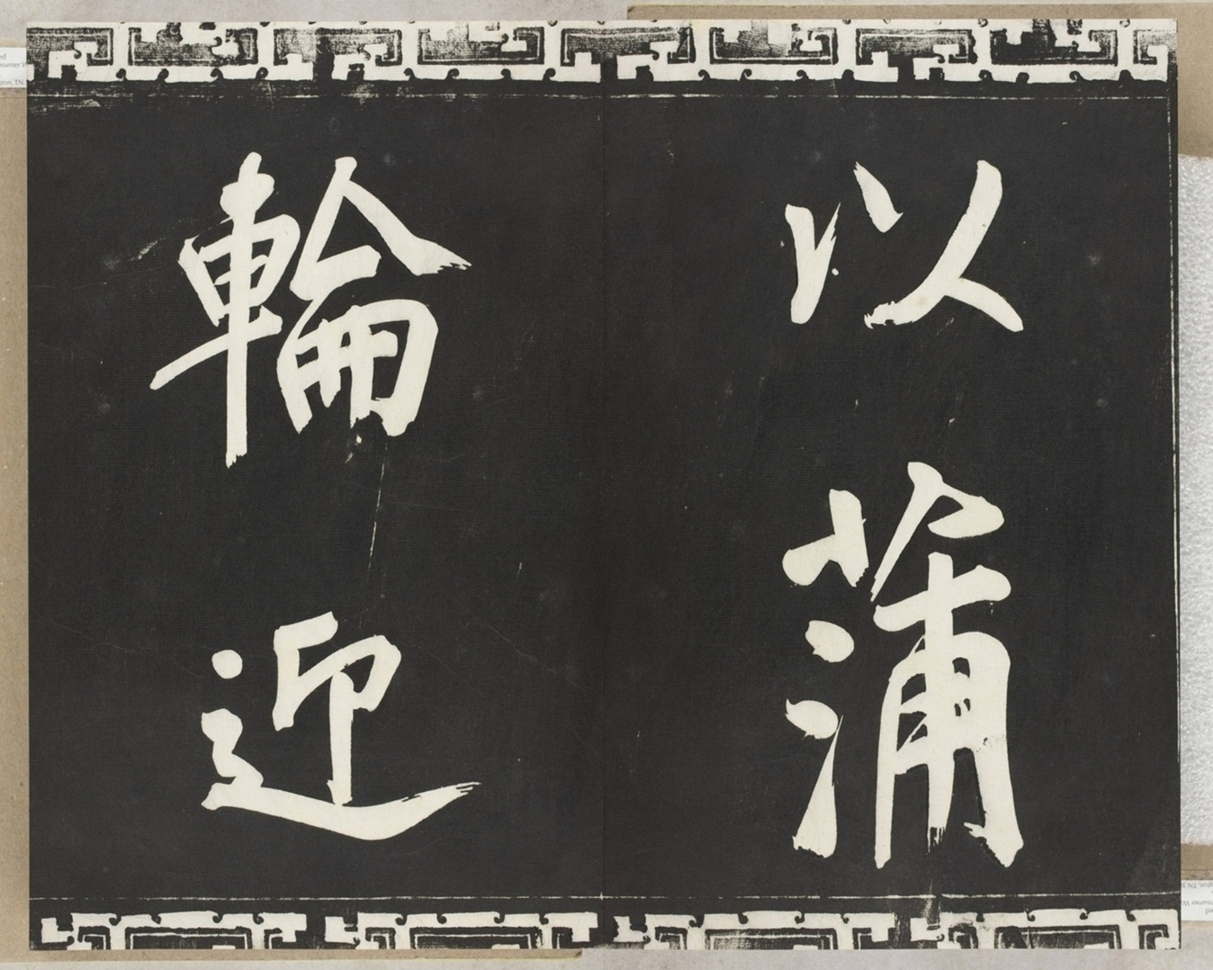 以蒲
輪迎